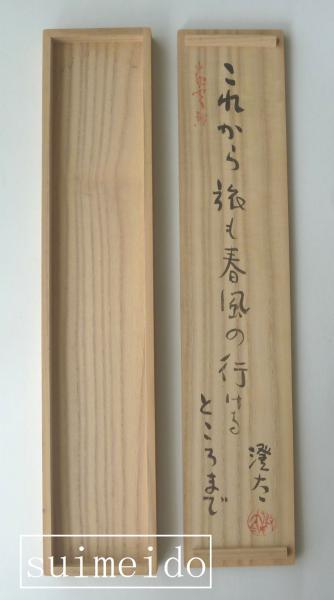 これから旅も春風の行ける
ところまで
澄太
suimeido